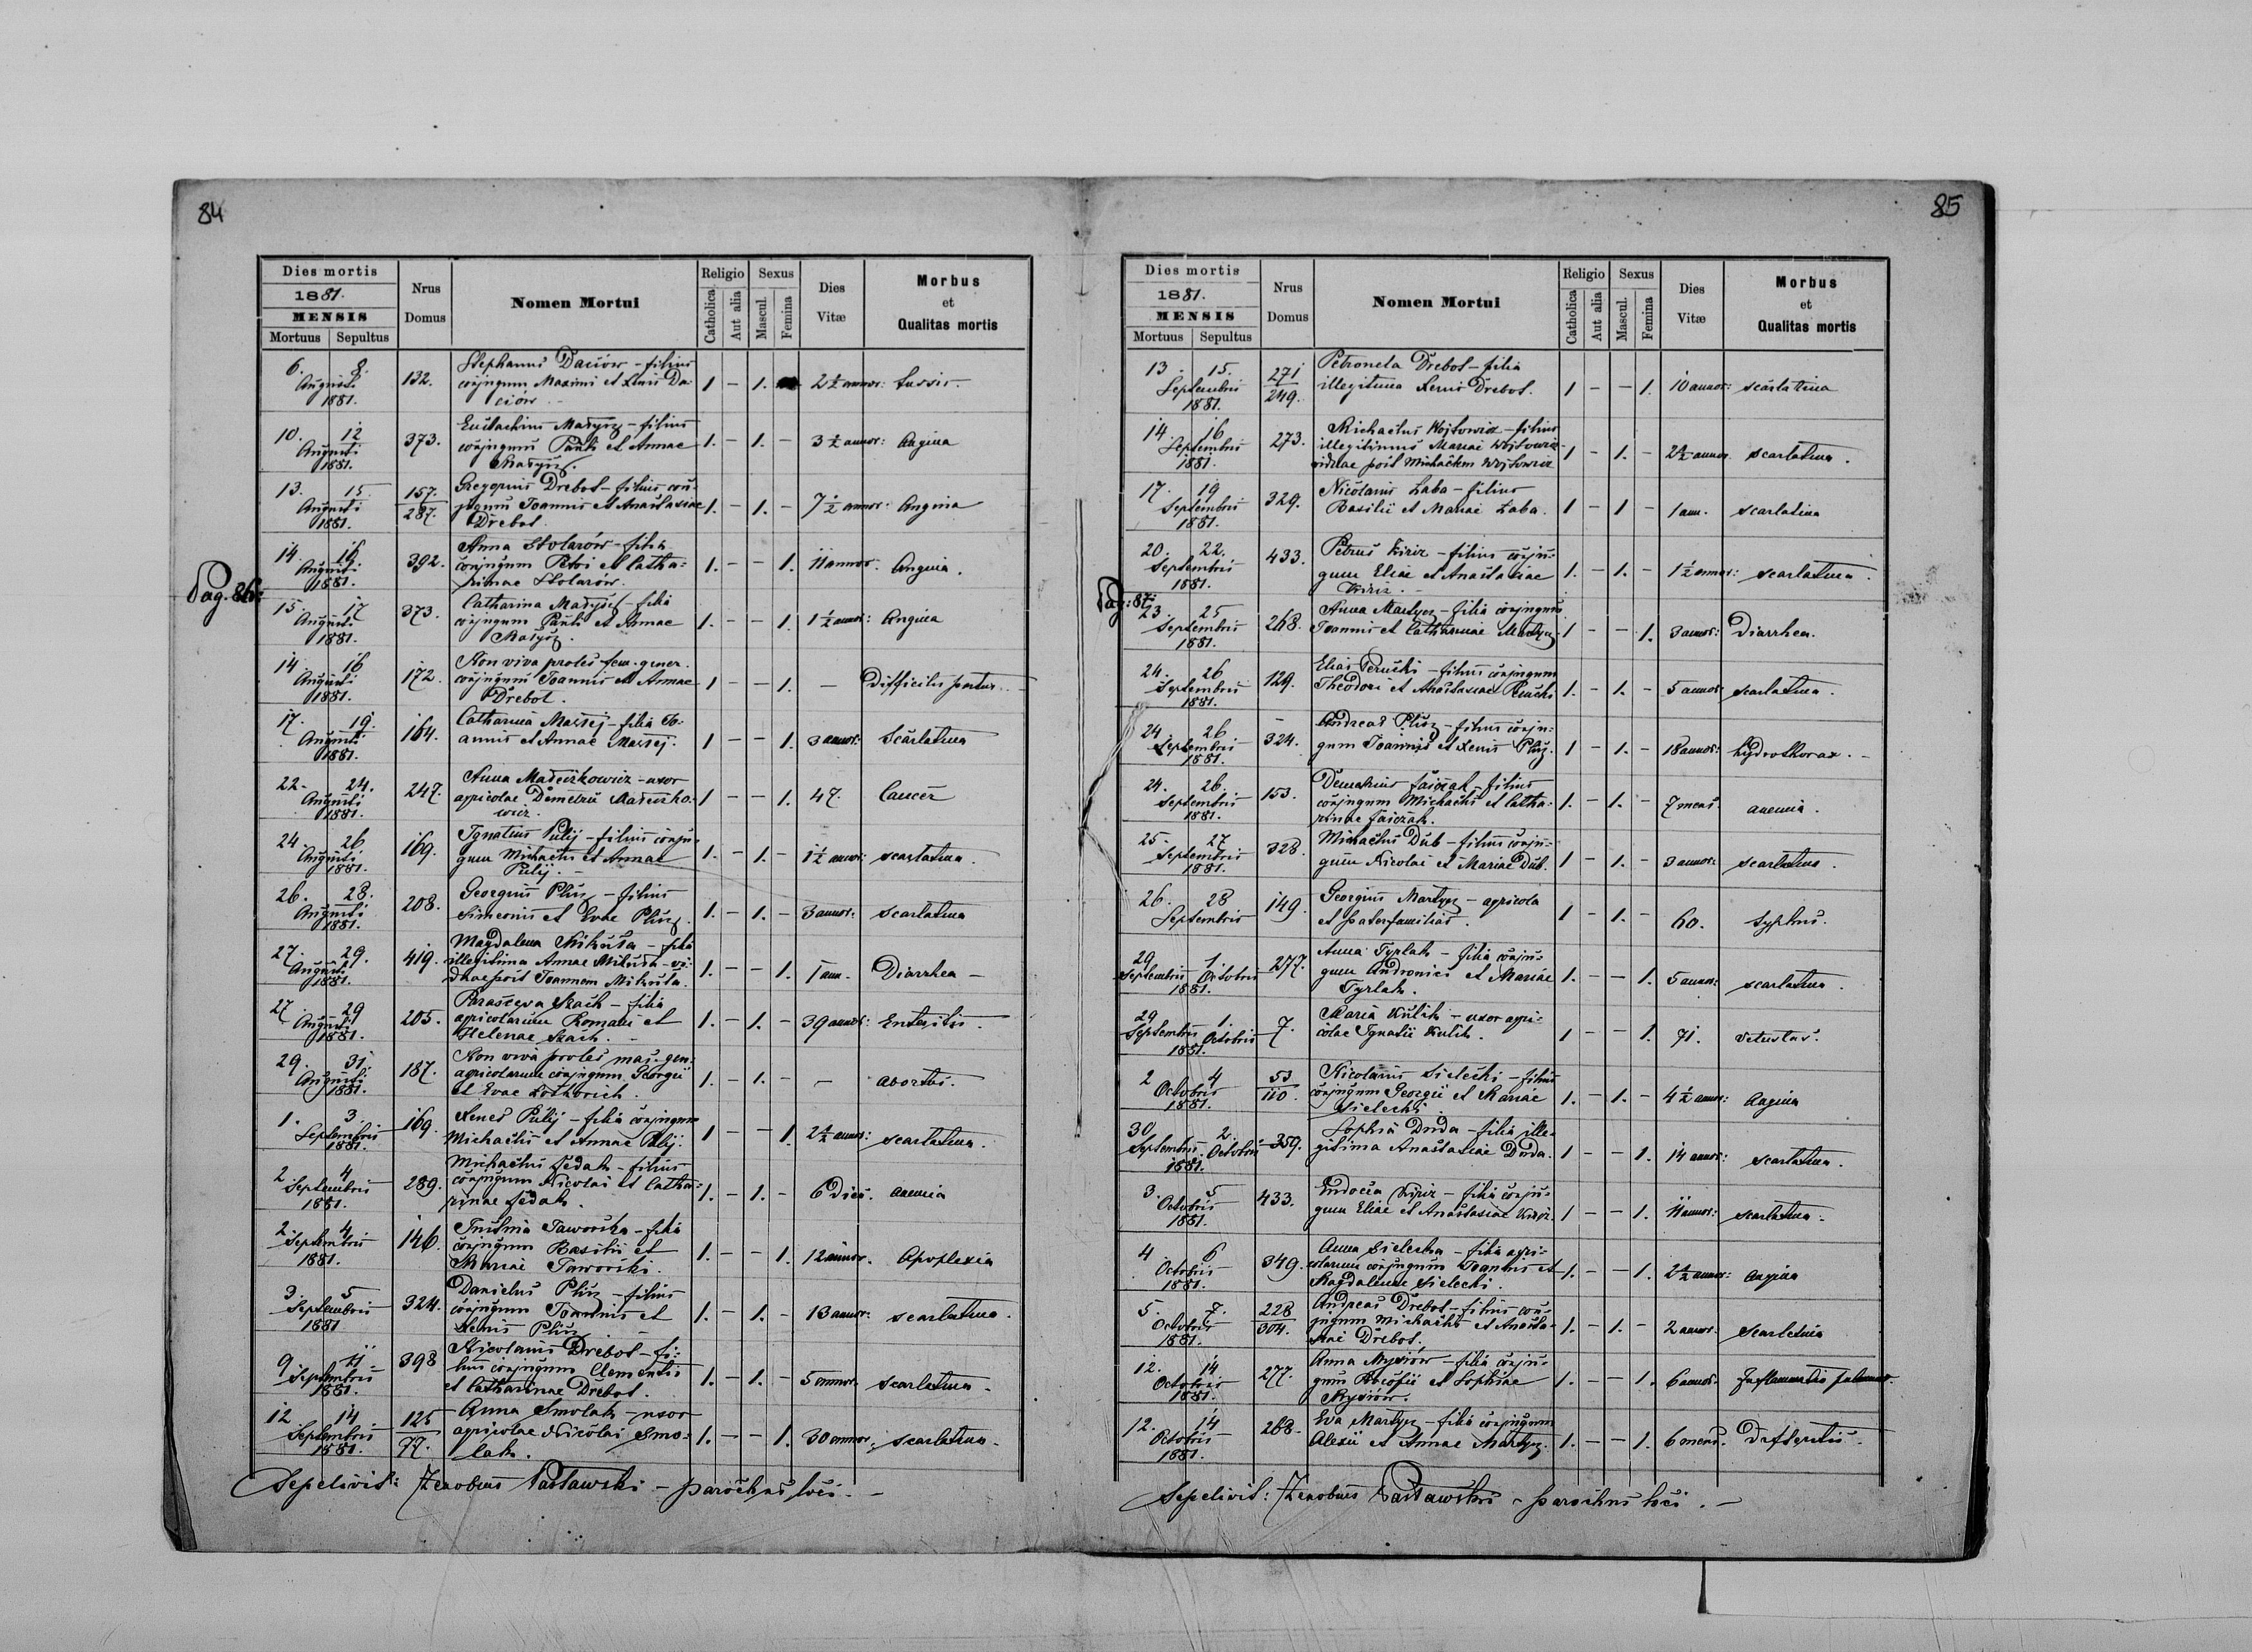 84
Dies mortis
1881.
MENSIS
Mortuus Sepultus
Nrus Domus
Nomen Mortui
Religio
Catholica Aut alia
Sexus
Mascul. Femina
Dies Vitæ
Morbus et Qualitas mortis
6. 8. 132. Stephanus Daciów – filius 1 – 1. 2½ annor: tussis.
Augusti conjugum Maximi et Xenis Da-
1881. ciów.
10. 12 373. Eustachius Matysz – filius 1. – 1. – 3½ annor: Angina
Augusti conjugum Pauli et Annae
1881. Matysz.
13. 15. 157. Gregorius Drebot – filius con- 1. – 1. – 7½ annor: Angina
Augusti 287. jugum Joannis et Anastasiae
1881. Drebot
14. 16 392. Anna Stolarów – filia 1. – – 1. 11 annor. Angina.
Augusti conjugum Petri et Catha-
1881. rinae Stolarów.
Pag. 86:
15. 17 373. Catharina Matysz – filia 1. – – 1. 1½ annor: Angina
Augusti conjugum Pauli et Annae
1881. Matysz.
14. 16 172. Non viva proles fem. gener. 1 – – 1. – Difficilis partus.
Augusti conjugum Joannis et Annae
1881. Drebot.
17. 19. 164. Catharina Matsej – filia Jo- 1 – – 1. 3 annor: Scarlatina
Augusti annis et Annae Matsej.
1881.
22. 24. 247. Anna Mateiszkowicz – uxor 1 – – 1. 47. Cancer
Augusti agricolae Demetrii Mateiszko-
1881. wicz.
24. 26 169. Ignatius Pulij – filius conju- 1. – 1. – 1½ annor: scarlatina.
Augusti gum Michaelis et Annae
1881. Pulij. –
26. 28. 208. Georgius Plisz – filius 1. – 1. – 3 annor: scarlatina
Augusti Simeonis et Evae Plisz.
1881.
27. 29. 419. Magdalena Mikusta – filia 1. – – 1. 1 ann. Diarrhea –
Augusti illegitima Annae Mikusta – vi-
1881. duae post Joannem Mikusta.
27. 29 205. Parasceva Szach – filia 1. – 1. – 39 annor: Enteritis.
Augusti agricolarum Romani et
1881. Helenae Szach.
29. 31. 187. Non viva proles mas. gen. 1. – 1. – – abortus.
Augusti agricolarum conjugum Georgii
1881. et Evae
1. 3. 169. Xenes Pulij – filia conjugum 1 – – 1. 2½ annor: scarlatina.
Septembris Michaelis et Annae Pulij.
1881.
2 4 289. Michaelus Fedak – filius 1. – 1. – 6 dies. anemia
Septembris conjugum Nicolai et Catha-
1881. rinae Fedak.
2 4 146. Jaworska – filia 1. – – 1. 12 annor. Apoplexia
Septembris conjugum Basilii et
1881. Mariae Jaworski.
3. 5 324. Danielus Plisz – filius 1. – 1. – 13 annor: scarlatina.
Septembris conjugum Joannis et
1881 Xenis Plisz
9 11 398 Nicolaus Drebot – fi- 1. – 1. – 5 annor. scarlatina.
Septembris lius conjugum Clementis
1881. et Catharinae Drebot.
12 14 125 Anna Smolak – uxor 1. – – 1. 30 annor. scarlatina.
Septembris 77. agricolae Nicolai Smo-
1881. lak.
Sepelivit: Zenobius Pasławski – parochus loci. –
85
Dies mortis
1881.
MENSIS
Mortuus Sepultus
Nrus Domus
Nomen Mortui
Religio
Catholica Aut alia
Sexus
Mascul. Femina
Dies Vitæ
Morbus et Qualitas mortis
13. 15. 271 Petronela Drebot – filia 1 – – 1. 10 annor: scarlatina
Septembris 249. illegitima Xenis Drebot.
1881.
14. 16 273. Michaelus Wojtowicz – filius 1 – 1. – 2½ annor. scarlatina.
Septembris illegitimus Mariae Wojtowicz
1881. viduae post Michaelem Wojtowicz
17. 19 329. Nicolaus Laba – filius 1 – 1 – 1 ann. scarlatina
Septembris Basilii et Mariae Laba.
1881.
20. 22. 433. Petrus Kiriz – filius conju- 1. – 1. – 1½ annor: scarlatina.
Septembris gum Eliae et Anastasiae
1881. Kiriz. –
Pag: 87:
23. 25 268. Anna Martysz – filia conjugum 1 – – 1. 3 annor: Diarrhea.
Septembris Joannis et Catharinae Martysz.
1881.
24. 26 129. Elias – filius conjugum 1. – 1. – 5 annor. scarlatina.
Septembris Theodori et Anastasiae
1881.
24. 26 324. Andreas Plisz – filius conju- 1 – 1. – 18 annor: hydrothorax. –
Septembris gum Joannis et Xenis Plisz.
1881.
24. 26. 153. Demetrius Saiczak – filius 1. – 1. – 7 mens. anemia.
Septembris conjugum Michaelis et Catha-
1881. rinae Saiczak.
25. 27 328. Michaelus Dub – filius conju- 1 – 1. – 3 annor: scarlatina.
Septembris gum Nicolai et Mariae Dub.
1881.
26. 28 149. Georgius Martysz – agricola 1 – 1. – 60. typhus.
Septembris et paterfamilias.
29 1. 277. Anna Tyrlak – filia conju- 1. – – 1. 5 annor: scarlatina.
Septembris Octobris gum Andronici et Mariae
1881. Tyrlak.
29 1. 7. Maria Kulik – uxor agri- 1 – – 1. 71. vetustas.
Septembris Octobris colae Ignatii Kulik.
1881.
2 4 53 Nicolaus Sielecki – filius 1. – 1. – 4½ annor: Angina
Octobris 110. conjugum Georgii et Mariae
1881. Sielecki.
30 2 359. Sophia Duda – filia ille- 1 – – 1. 14 annor: scarlatina.
Septembris. Octobris gitima Anastasiae Duda.
1881.
3. 5 433. Eudocia Kiriz – filia conju- 1 – – 1. 11 annor: scarlatina.
Octobris gum Eliae et Anastasiae Kiriz
1881.
4 6 349. Anna Sielecka – filia agri- 1. – – 1. 2½ annor: angina
Octobris colarum conjugum Joannis et
1881. Magdalenae Sielecki.
5. 7. 228 Andreas Drebot – filius con- 1. – 1. – 2 annor: scarlatina
Octobris 304. jugum Michaelis et Anasta-
1881. siae Drebot.
12. 14 277. Anna Mysiów – filia conju- 1. – – 1. 6 annor. Inflammatio pulmon.
Octobris gum et Sophiae
1881. Mysiów.
12. 14 268. Eva Martysz – filia conjugum 1. – – 1. 6 mens. Difteritis.
Octobris Alexii et Annae Martysz.
1881.
Sepelivit: Zenobius Pasławski – parochus loci. –